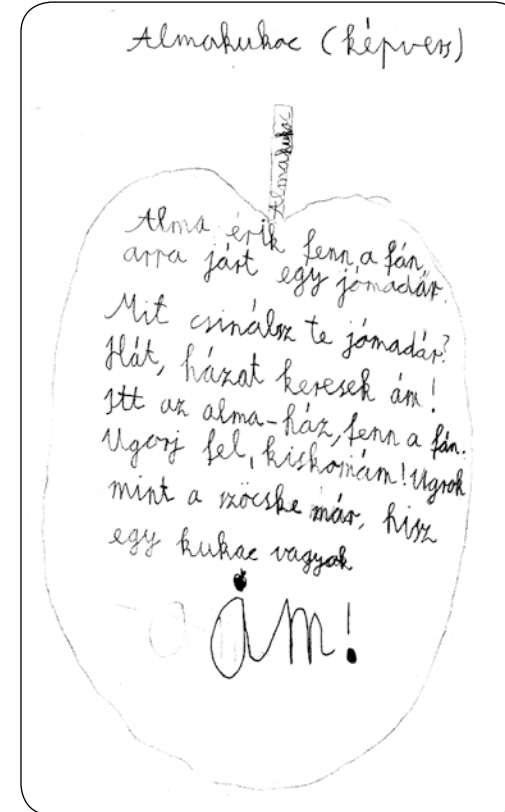 Almakukac (képvers)
Almakukac
Alma érik fenn a fán,
arra járt egy jómadár.
Mit csinálsz te jómadár?
Hát, házat keresek ám!
Itt az alma-ház, fenn a fán.
Ugorj fel, kiskomám! Ugrok
mint a szöcske már, hisz
egy kukac vagyok
ám!